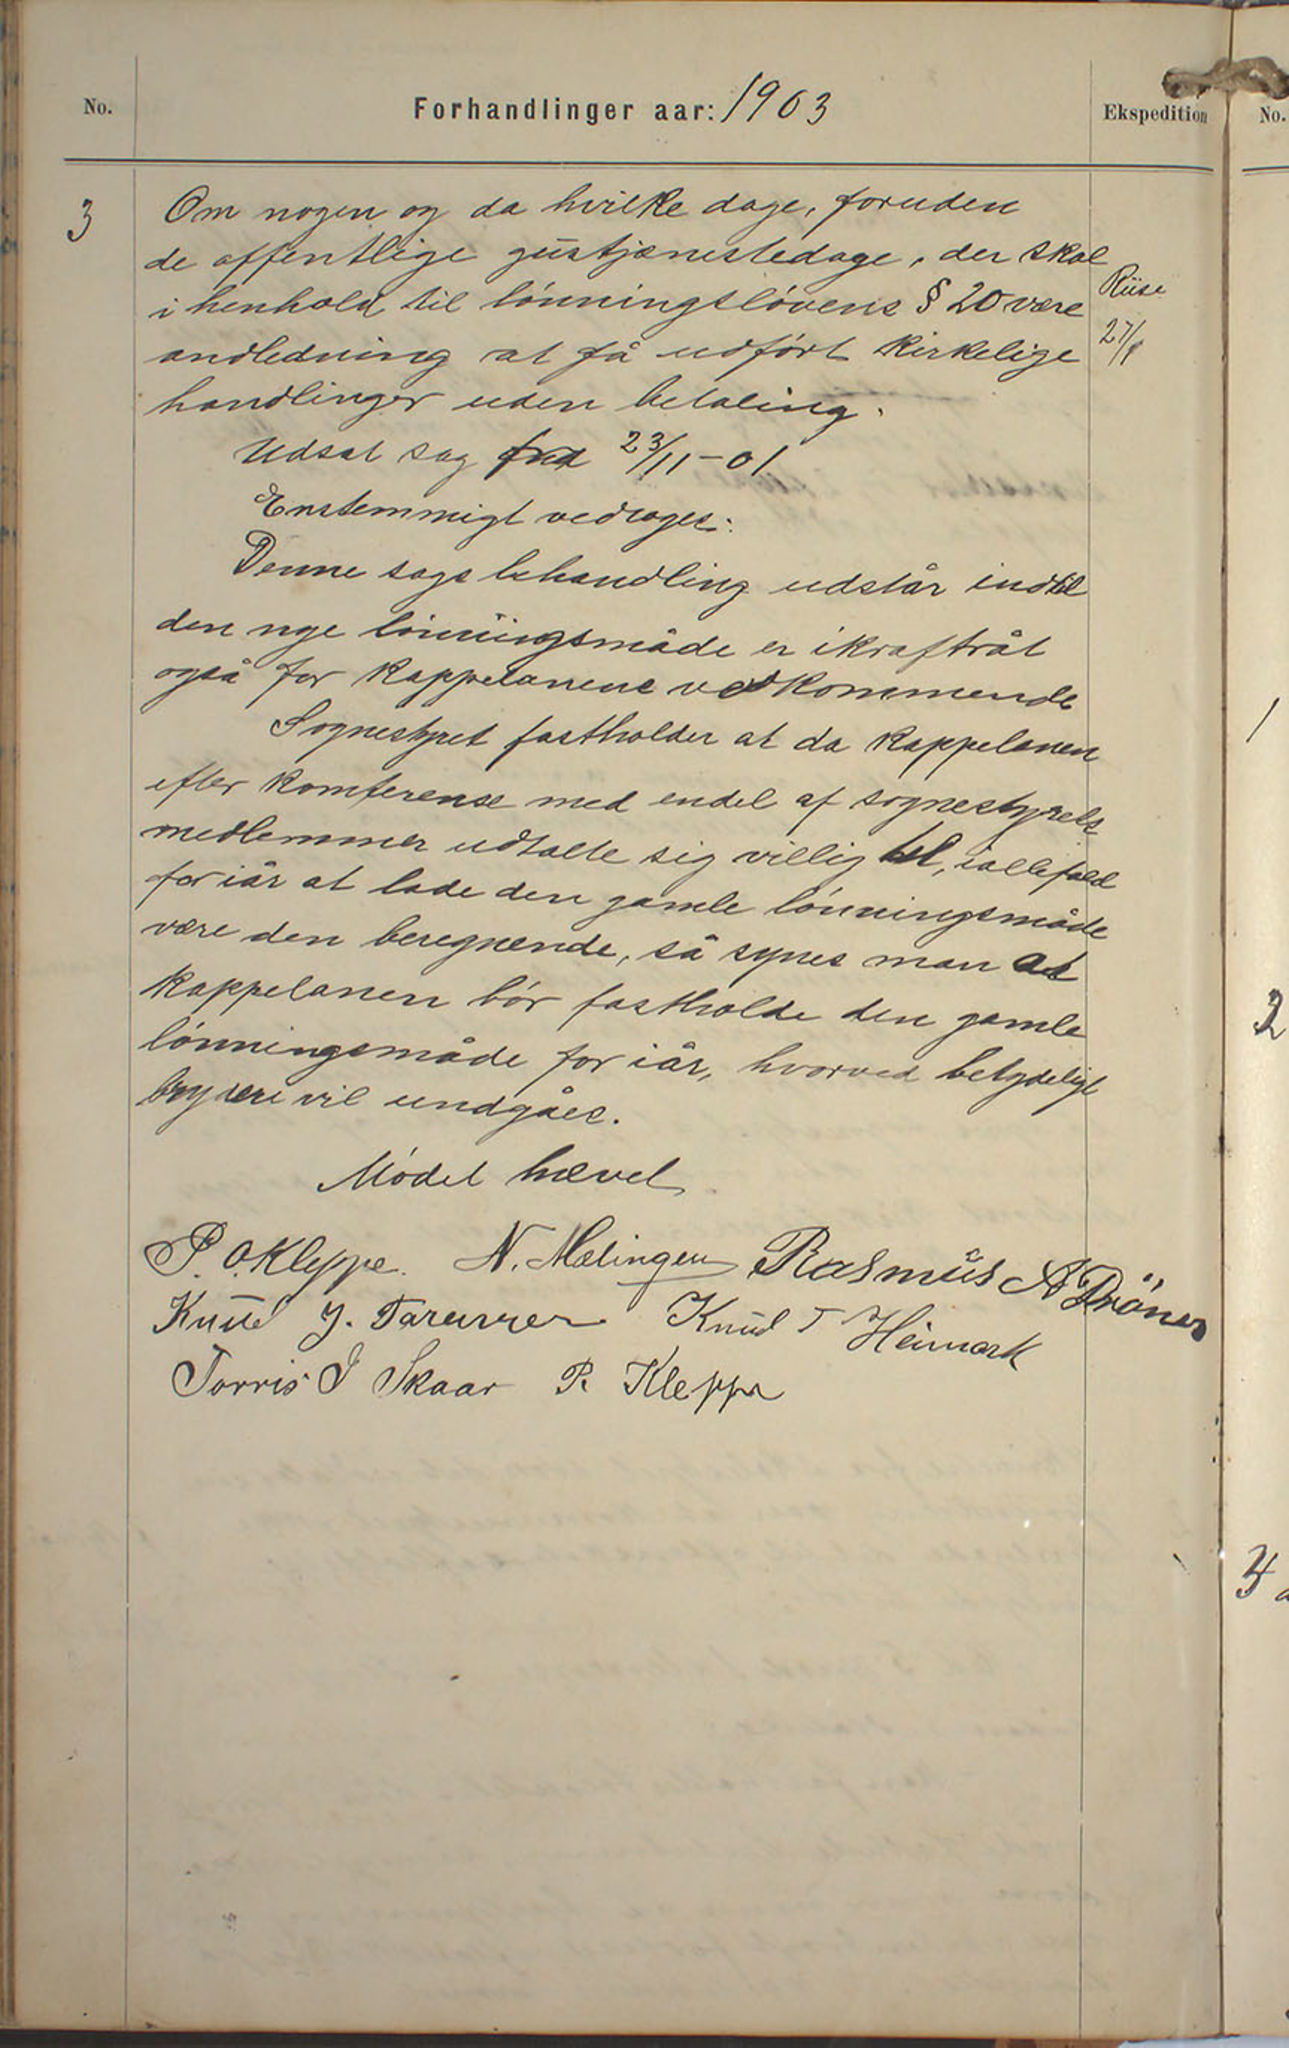 No.
Forhandlinger aar: 1903
Ekspedition
No.
3
Om nogen og da hvilke dage, foruden
de offentlige gustjænestedage, der skal
i henhold til lönningslövens § 20 være
andledning at få udfört kirkelige
handlinger uden betaling.
Riise
27/8
Udsat sag fra 23/11-01
Enstemmigt vedtoges:
Denne sags behandling udstår indtil
den nye lönningsmåde er ikraftråt
også for kappelanens vedkommende
Sognestyret fastholder at da kappelanen
efter komferense med endel af sognestyrets
medlemmer udtalte sig villig til, iallefald
for iår at lade den gamle lönningsmåde
være den beregnende, så synes man at
kappelanen bör fastholde den gamle
lönningsmåde for iår, hvorved betydeligt
bryderi vil undgåes.
Mödet hævet
P. O. Kleppe. N. Mælingen Rasmus A Drönen
Knud J. Taranger Knud T Heimark
Torris J Skaar P. Kleppe
1
2
3